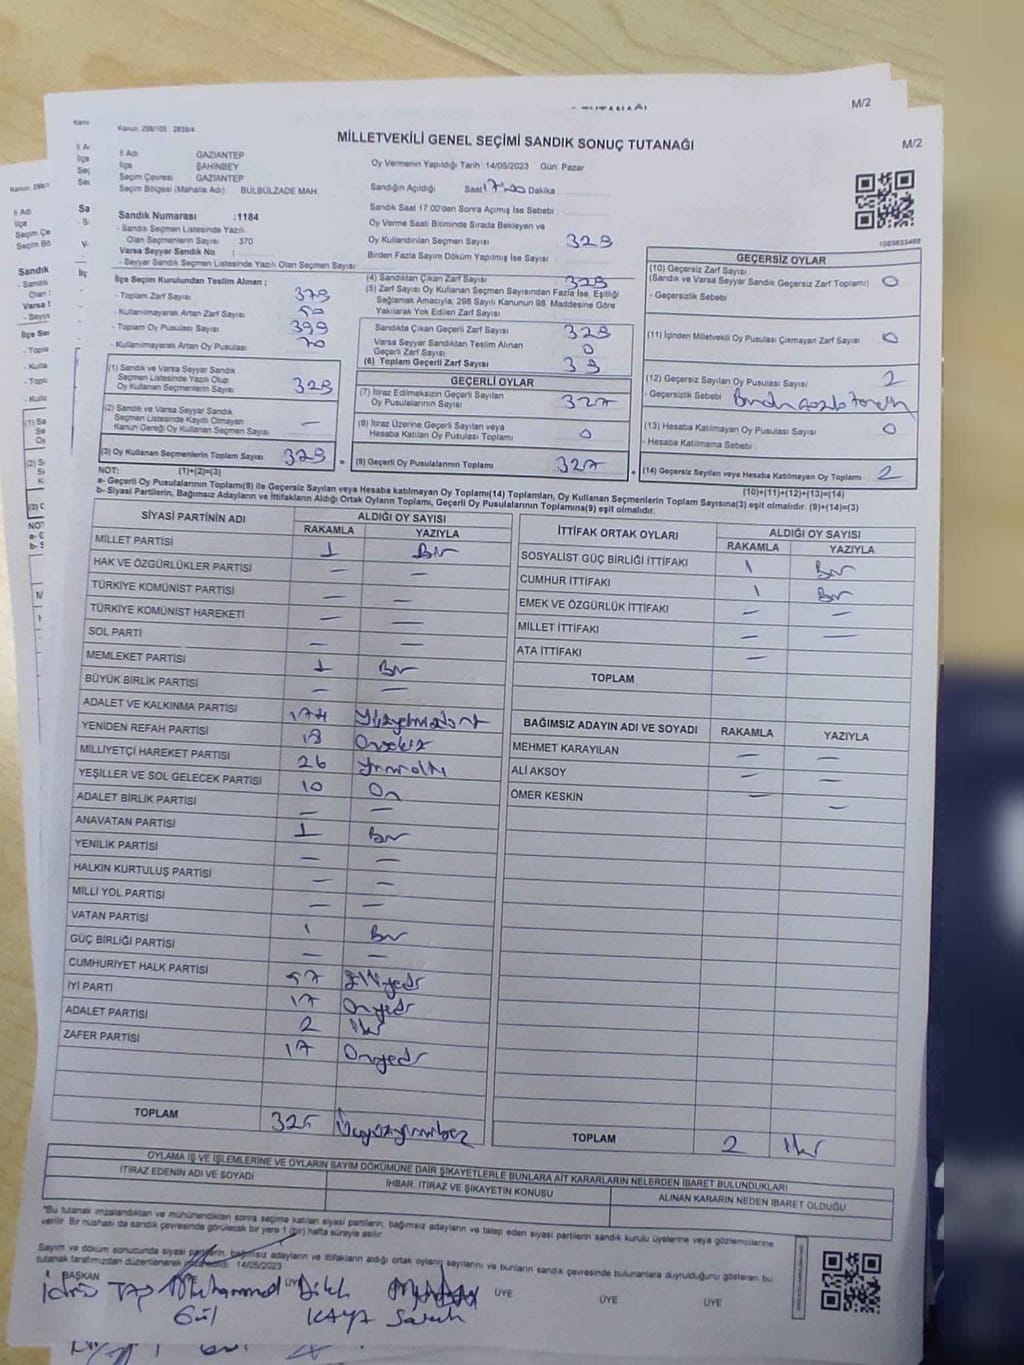 M/2
Kanun: 298/105 : 2839/4
MİLLETVEKİLİ GENEL SEÇİMİ SANDIK SONUÇ TUTANAĞI
M/2
İl Adı GAZİANTEP
İlçe ŞAHİNBEY
Seçim Çevresi GAZİANTEP
Seçim Bölgesi (Mahalle Adı) BÜLBÜLZADE MAH.
Oy Vermenin Yapıldığı Tarih :14/05/2023 Gün: Pazar
Sandığın Açıldığı Saat 17:00 Dakika
Sandık Saat 17:00'den Sonra Açılmış İse Sebebi
Sandık Numarası :1184
- Sandık Seçmen Listesinde Yazılı
Olan Seçmenlerin Sayısı : 370
Varsa Seyyar Sandık No :
- Seyyar Sandık Seçmen Listesinde Yazılı Olan Seçmen Sayısı :
Oy Verme Saati Bitiminde Sırada Bekleyen ve
Oy Kullandırılan Seçmen Sayısı 329
Birden Fazla Sayım Döküm Yapılmış İse Sayısı
İlçe Seçim Kurulundan Teslim Alınan ;
- Toplam Zarf Sayısı 379
- Kullanılmayarak Artan Zarf Sayısı 50
- Toplam Oy Pusulası Sayısı 399
- Kullanılmayarak Artan Oy Pusulası 70
(1) Sandık ve Varsa Seyyar Sandık
Seçmen Listesinde Yazılı Olup
Oy Kullanan Seçmenlerin Sayısı 329
(2) Sandık ve Varsa Seyyar Sandık
Seçmen Listesinde Kayıtlı Olmayan
Kanun Gereği Oy Kullanan Seçmen Sayısı —
(3) Oy Kullanan Seçmenlerin Toplam Sayısı 329
(4) Sandıktan Çıkan Zarf Sayısı 329
(5) Zarf Sayısı Oy Kullanan Seçmen Sayısından Fazla İse, Eşitliği
Sağlamak Amacıyla, 298 Sayılı Kanunun 98. Maddesine Göre
Yakılarak Yok Edilen Zarf Sayısı
Sandıkta Çıkan Geçerli Zarf Sayısı 329
Varsa Seyyar Sandıktan Teslim Alınan
Geçerli Zarf Sayısı 0
(6) Toplam Geçerli Zarf Sayısı
GEÇERLİ OYLAR
(7) İtiraz Edilmeksizin Geçerli Sayılan
Oy Pusulalarının Sayısı 327
(8) İtiraz Üzerine Geçerli Sayılan veya
Hesaba Katılan Oy Pusulası Toplamı 0
(9) Geçerli Oy Pusulalarının Toplamı 327
1083833488
GEÇERSİZ OYLAR
(10) Geçersiz Zarf Sayısı
(Sandık ve Varsa Seyyar Sandık Geçersiz Zarf Toplamı) 0
- Geçersizlik Sebebi
(11) İçinden Milletvekili Oy Pusulası Çıkmayan Zarf Sayısı 0
(12) Geçersiz Sayılan Oy Pusulası Sayısı 2
- Geçersizlik Sebebi
(13) Hesaba Katılmayan Oy Pusulası Sayısı 0
- Hesaba Katılmama Sebebi
(14) Geçersiz Sayılan veya Hesaba Katılmayan Oy Toplamı 2
NOT: (1)+(2)=(3) (10)+(11)+(12)+(13)=(14)
a- Geçerli Oy Pusulalarının Toplamı(9) ile Geçersiz Sayılan veya Hesaba katılmayan Oy Toplamı(14) Toplamları, Oy Kullanan Seçmenlerin Toplam Sayısına(3) eşit olmalıdır. (9)+(14)=(3)
b- Siyasi Partilerin, Bağımsız Adayların ve İttifakların Aldığı Ortak Oyların Toplamı, Geçerli Oy Pusulalarının Toplamına(9) eşit olmalıdır.
SİYASİ PARTİNİN ADI ALDIĞI OY SAYISI
RAKAMLA YAZIYLA
MİLLET PARTİSİ 1 Bir
HAK VE ÖZGÜRLÜKLER PARTİSİ — —
TÜRKİYE KOMÜNİST PARTİSİ — —
TÜRKİYE KOMÜNİST HAREKETİ — —
SOL PARTİ — —
MEMLEKET PARTİSİ 1 Bir
BÜYÜK BİRLİK PARTİSİ — —
ADALET VE KALKINMA PARTİSİ 174 Yüzyetmişdört
YENİDEN REFAH PARTİSİ 18 Onsekiz
MİLLİYETÇİ HAREKET PARTİSİ 26 Yirmialtı
YEŞİLLER VE SOL GELECEK PARTİSİ 10 On
ADALET BİRLİK PARTİSİ — —
ANAVATAN PARTİSİ 1 Bir
YENİLİK PARTİSİ — —
HALKIN KURTULUŞ PARTİSİ — —
MİLLİ YOL PARTİSİ — —
VATAN PARTİSİ 1 Bir
GÜÇ BİRLİĞİ PARTİSİ — —
CUMHURİYET HALK PARTİSİ 57 Elliyedi
İYİ PARTİ 17 Onyedi
ADALET PARTİSİ 2 İki
ZAFER PARTİSİ 17 Onyedi
TOPLAM 325 Üçyüzyirmibeş
İTTİFAK ORTAK OYLARI ALDIĞI OY SAYISI
RAKAMLA YAZIYLA
SOSYALİST GÜÇ BİRLİĞİ İTTİFAKI 1 Bir
CUMHUR İTTİFAKI 1 Bir
EMEK VE ÖZGÜRLÜK İTTİFAKI — —
MİLLET İTTİFAKI — —
ATA İTTİFAKI —
TOPLAM
BAĞIMSIZ ADAYIN ADI VE SOYADI RAKAMLA YAZIYLA
MEHMET KARAYILAN — —
ALİ AKSOY — —
ÖMER KESKİN — —
TOPLAM 2 İki
OYLAMA İŞ VE İŞLEMLERİNE VE OYLARIN SAYIM DÖKÜMÜNE DAİR ŞİKAYETLERLE BUNLARA AİT KARARLARIN NELERDEN İBARET BULUNDUKLARI
İTİRAZ EDENİN ADI VE SOYADI İHBAR, İTİRAZ VE ŞİKAYETİN KONUSU ALINAN KARARIN NEDEN İBARET OLDUĞU
*Bu tutanak imzalandıktan ve mühürlendikten sonra seçime katılan siyasi partilerin, bağımsız adayların ve talep eden siyasi partilerin sandık kurulu üyelerine veya gözlemcilerine
verilir. Bir nüshası da sandık çevresinde görülecek bir yere 1 (bir) hafta süreyle asılır.
Sayım ve döküm sonucunda siyasi partilerin, bağımsız adayların ve ittifakların aldığı ortak oyların sayılarını ve bunların sandık çevresinde bulunanlara duyrulduğunu gösteren bu
tutanak tarafımızdan düzenlenerek 14/05/2023
BAŞKAN ÜYE ÜYE ÜYE ÜYE
İdris TAP Muhammed Gül KAYA